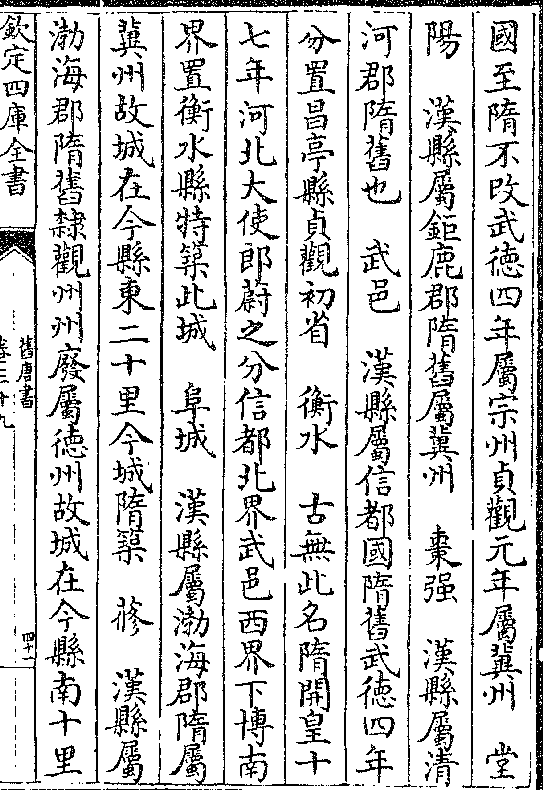 國至隋不改武德四年屬宗州貞觀元年屬冀州　堂
陽　漢縣屬鉅鹿郡隋舊屬冀州　棗强　漢縣屬清
河郡隋舊也　武邑　漢縣屬信都國隋舊武德四年
分置昌亭縣貞觀初省　衡水　古無此名隋開皇十
七年河北大使郎蔚之分信都北界武邑西界下博南
界置衡水縣特築此城　阜城　漢縣屬渤海郡隋屬
冀州故城在今縣東二十里今城隋築　蓨　漢縣屬
渤海郡隋舊隸觀州州廢屬德州故城在今縣南十里
欽定四庫全書
舊唐書
卷三十九
四十一